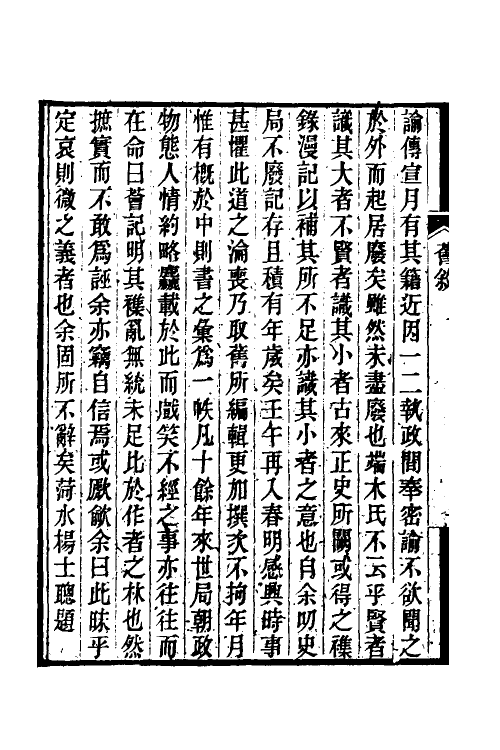 諭傳宣月有其籍近因一二執政間奉密諭不欲聞之
於外而起居廢矣雖然未盡廢也端木氏不云乎賢者
識其大者不賢者識其小者古來正史所闕或得之襍
錄漫記以補其所不足亦識其小者之意也自余叨史
局不廢記存且積有年歲矣壬午再入春明感興時事
甚懼此道之淪喪乃取舊所編輯更加撰次不拘年月
惟有概於中則書之彙爲一帙凡十餘年來世局朝政
物態人情約略麤載於此而戲笑不經之事亦往往而
在命曰薈記明其襍亂無統未足比於作者之林也然
摭實而不敢爲誣余亦竊自信焉或厭歈余曰此昧乎
定哀則微之義者也余固所不辭矣菏水楊士聰題
舊敘